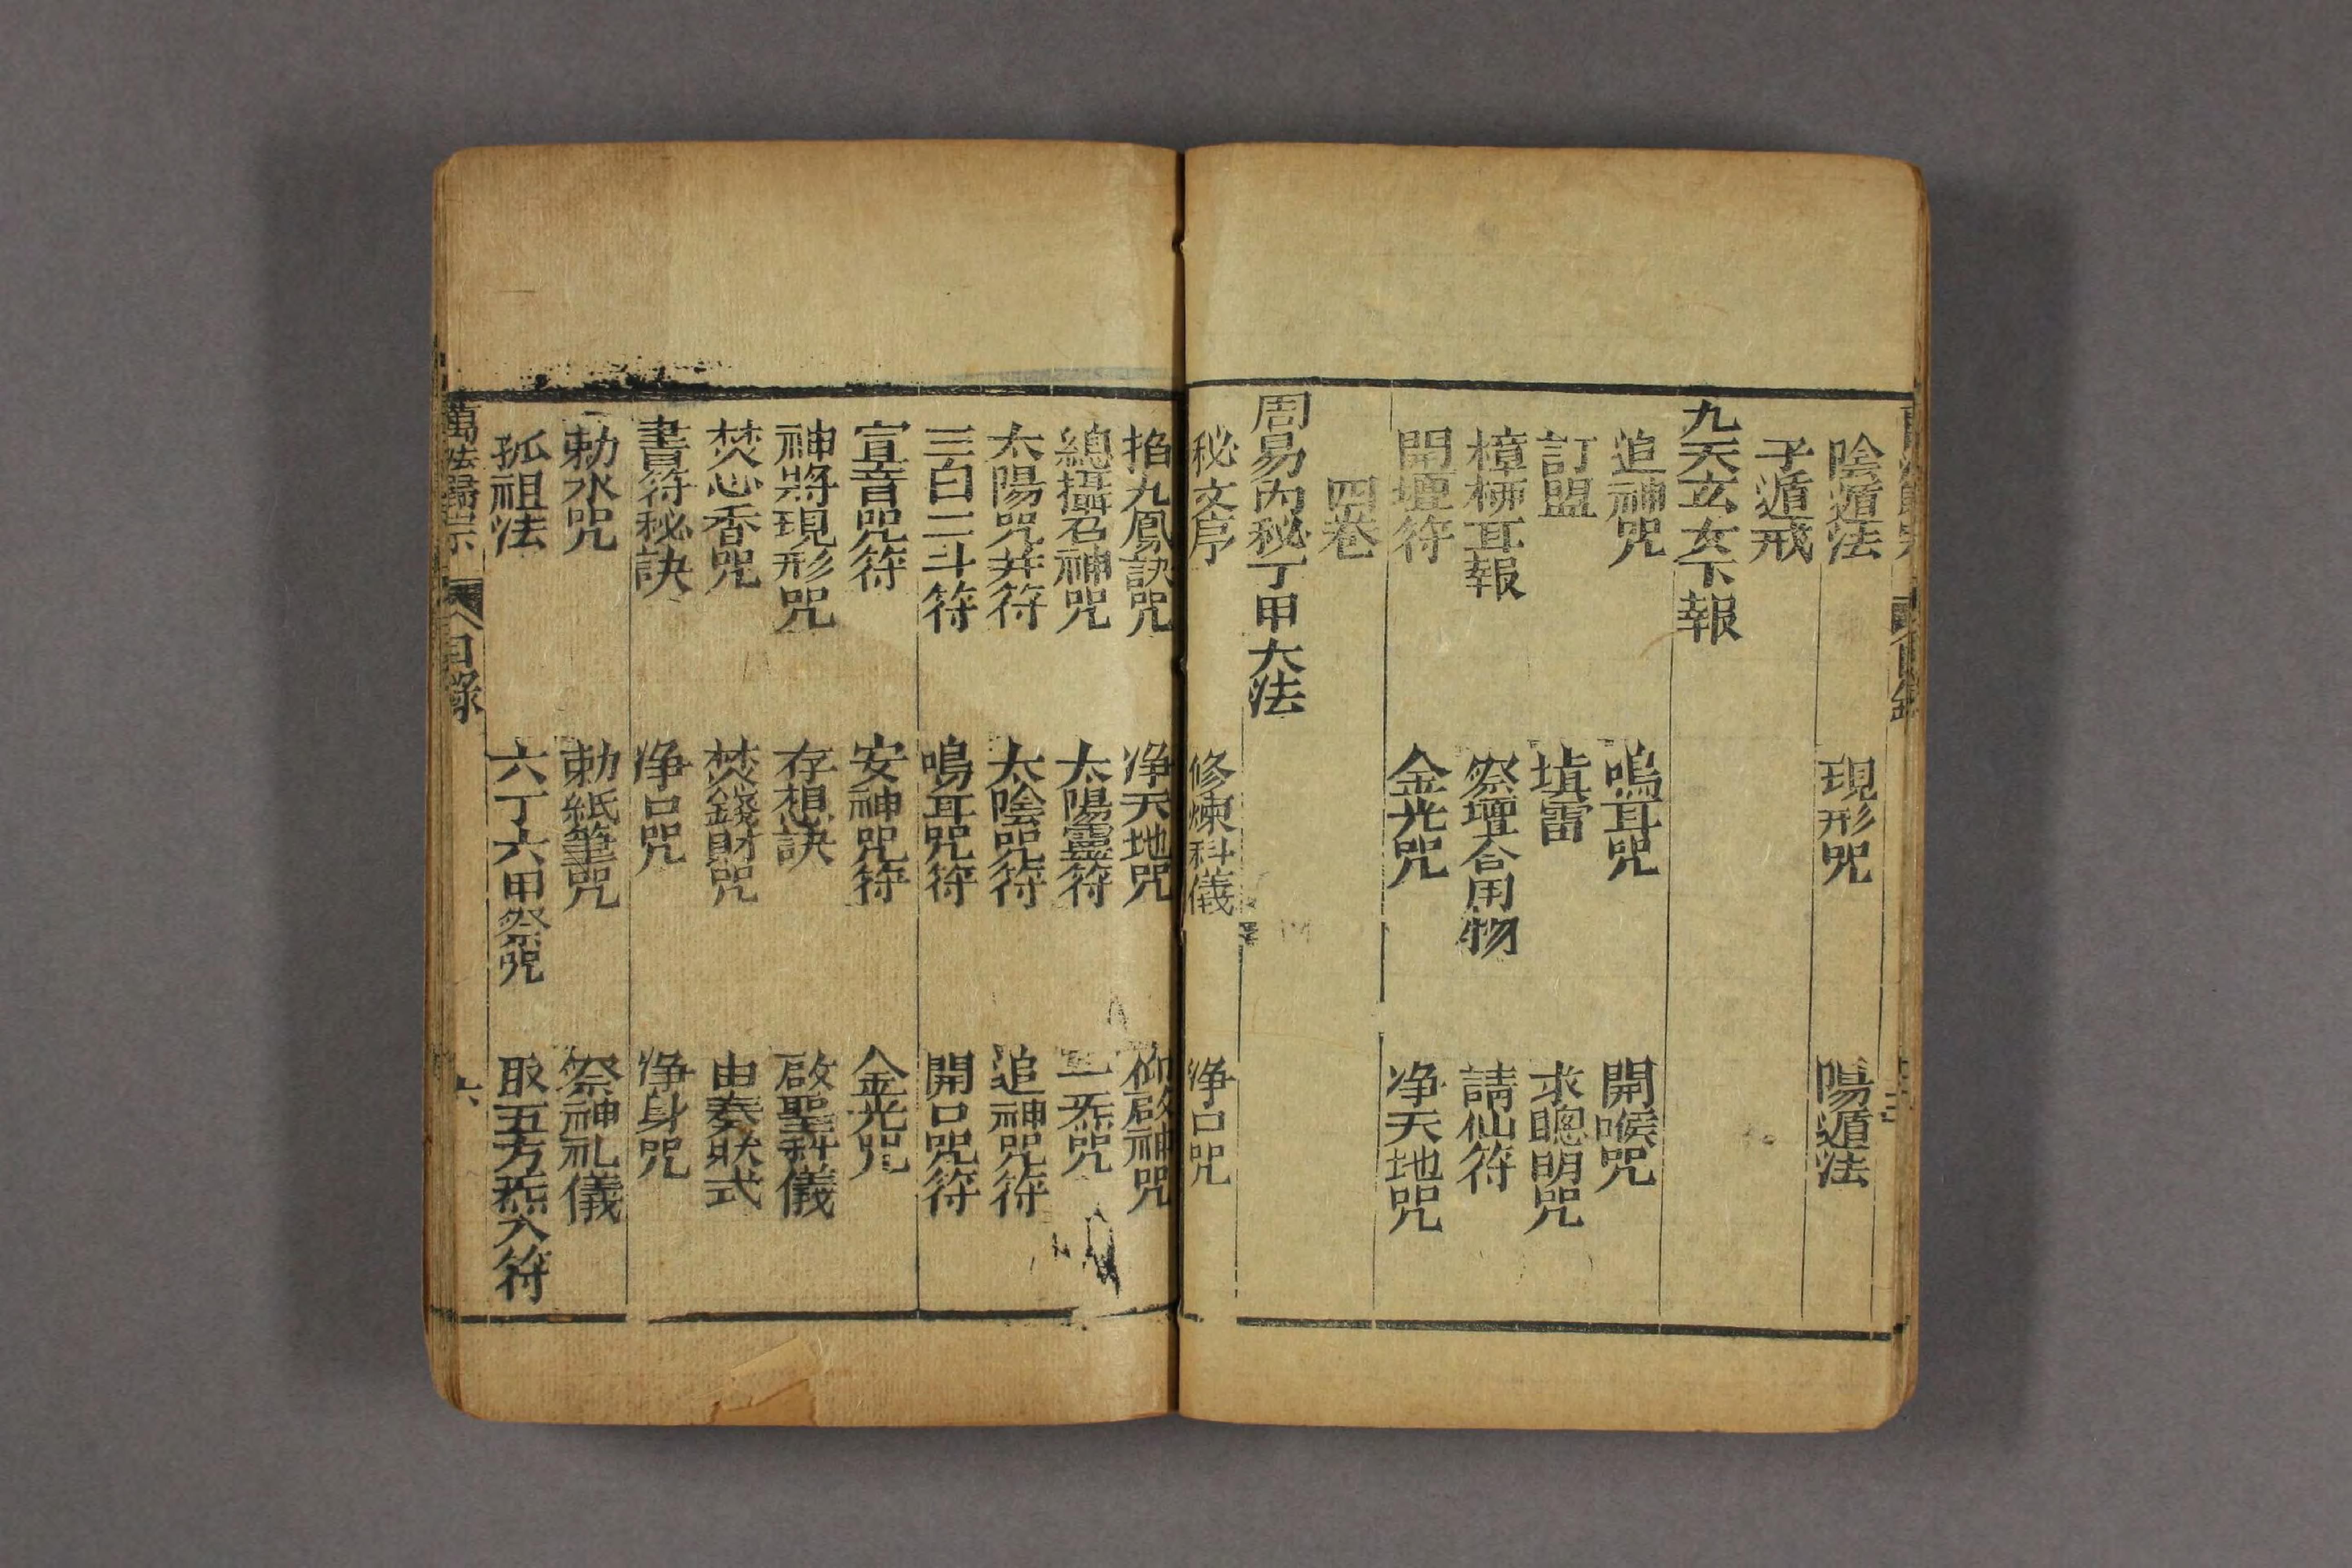 陰遁法 現形咒 陽遁法
子遁戒
九天玄女下報
追神咒 鳴耳咒 開喉咒
訂盟 塡雷 求聰明咒
樟柳耳報 祭壇合用物 請仙符
開壇符 金光咒 净天地咒
四卷
周易內秘丁甲大法
秘文序 修煉科儀 净口咒
掐九鳳訣咒 净天地咒 仰啟神咒
總攝召神咒 太陽靈符 二炁咒
太陽咒并符 太陰咒符 追神咒符
三白三斗符 鳴耳咒符 開口咒符
宣音咒符 安神咒符 金光咒
神將現形咒 存想訣 啟聖科儀
焚心香咒 焚錢財咒 由奏狀式
書符秘訣 净口咒 净身咒
勅水咒 勅紙筆咒 祭神礼儀
孤祖法 六丁六甲祭咒 取五方炁入符
萬法歸宗 目錄 六